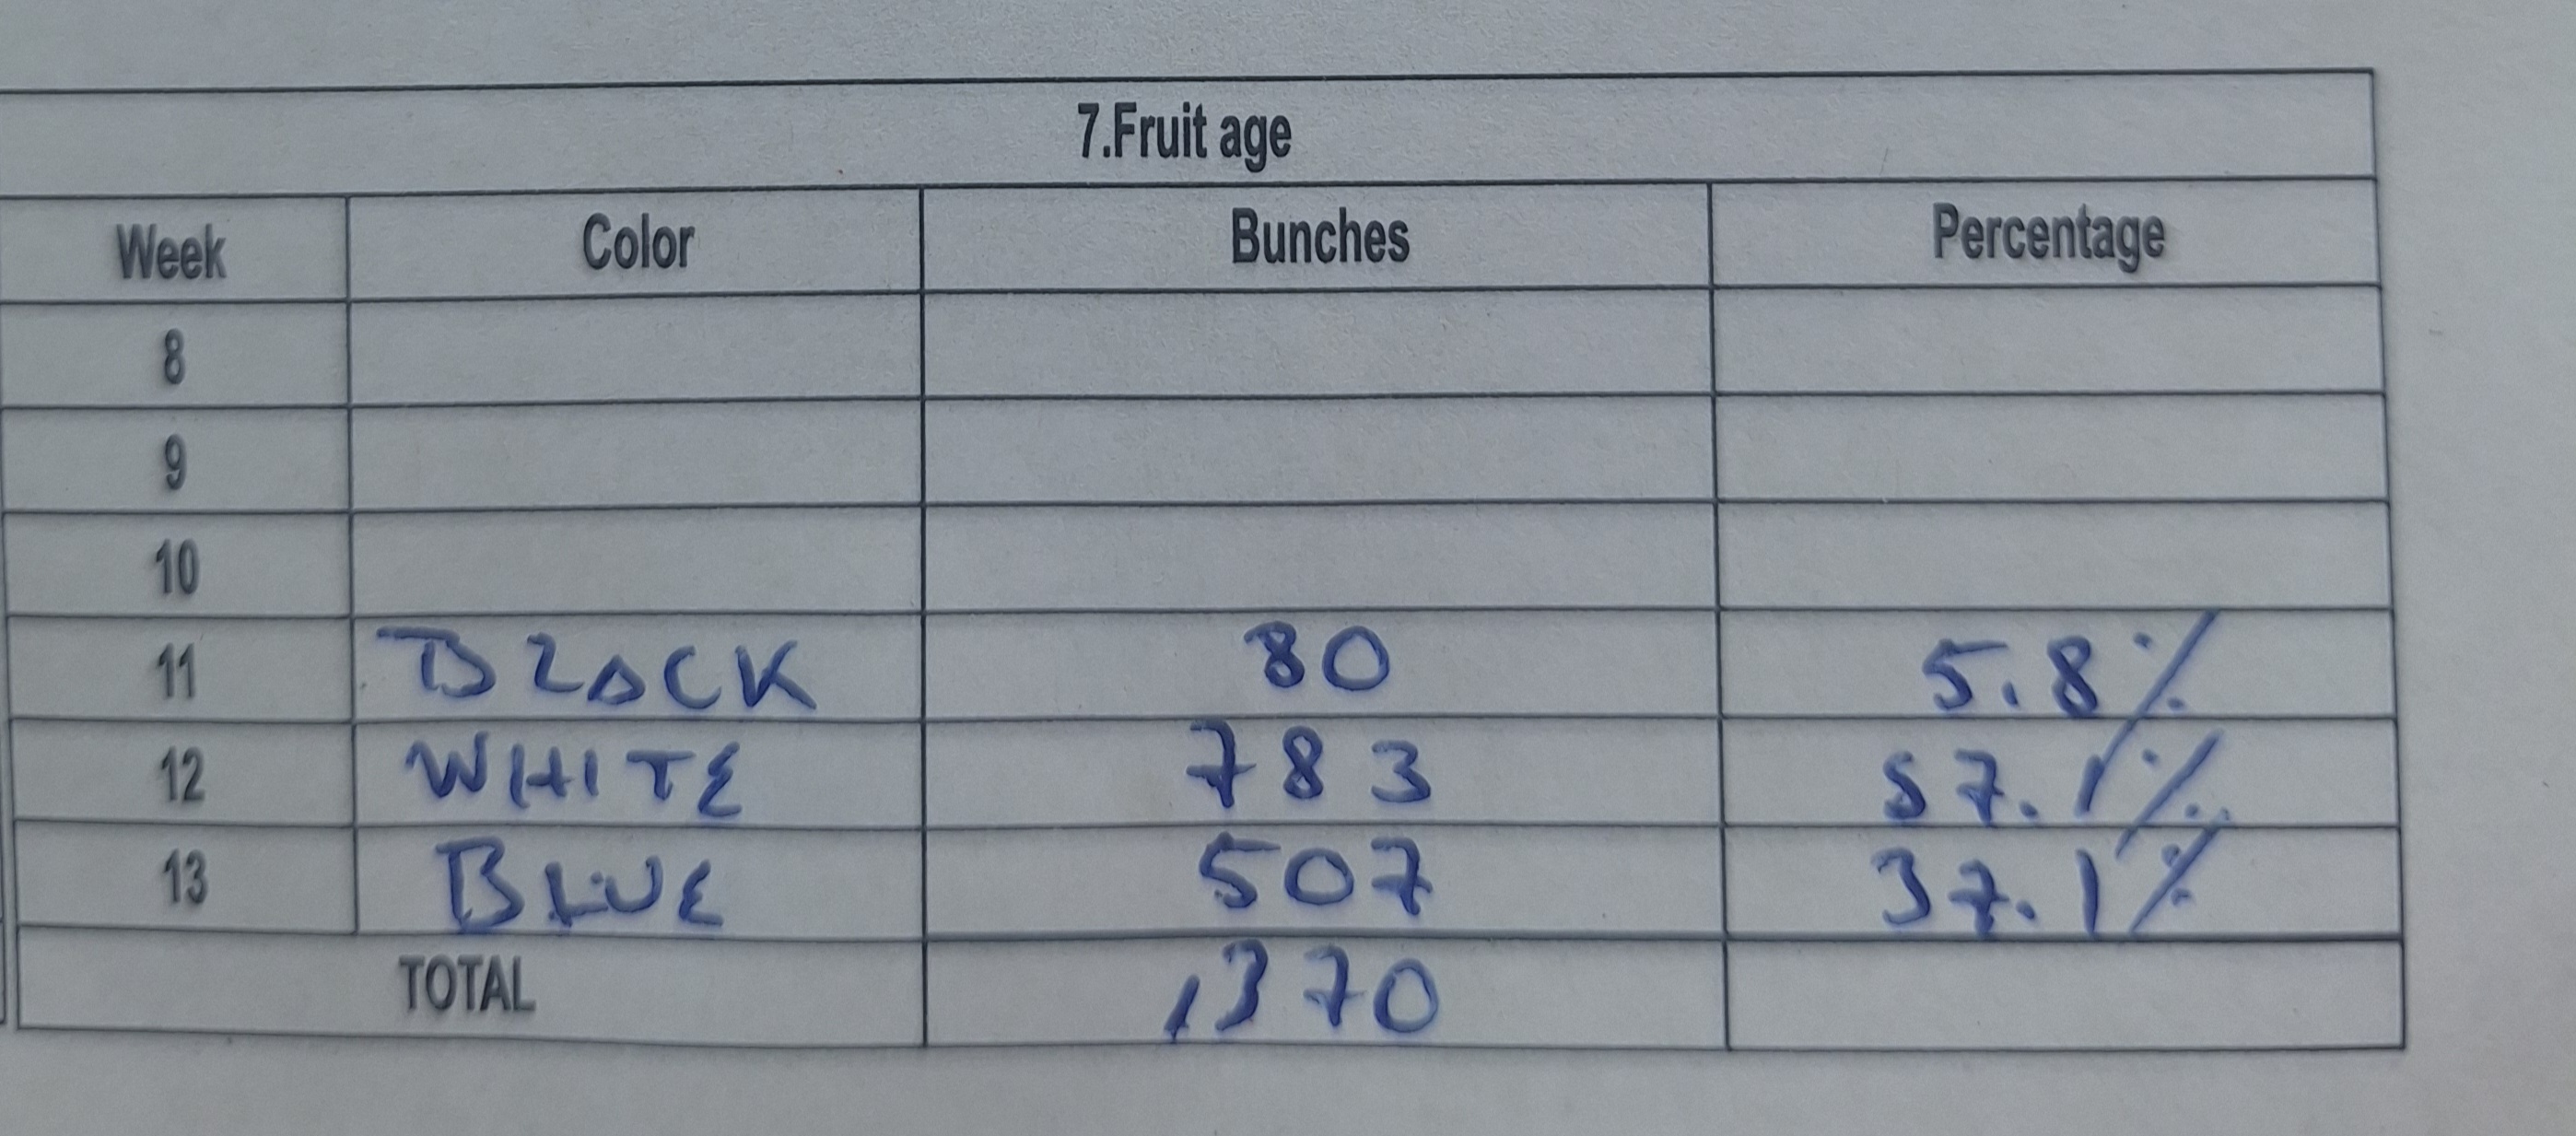 7.Fruit age
Week Color Bunches Percentage
8
9
10
11 BLACK 80 5.8%
12 WHITE 783 57.1%
13 BLUE 507 37.1%
TOTAL 1370